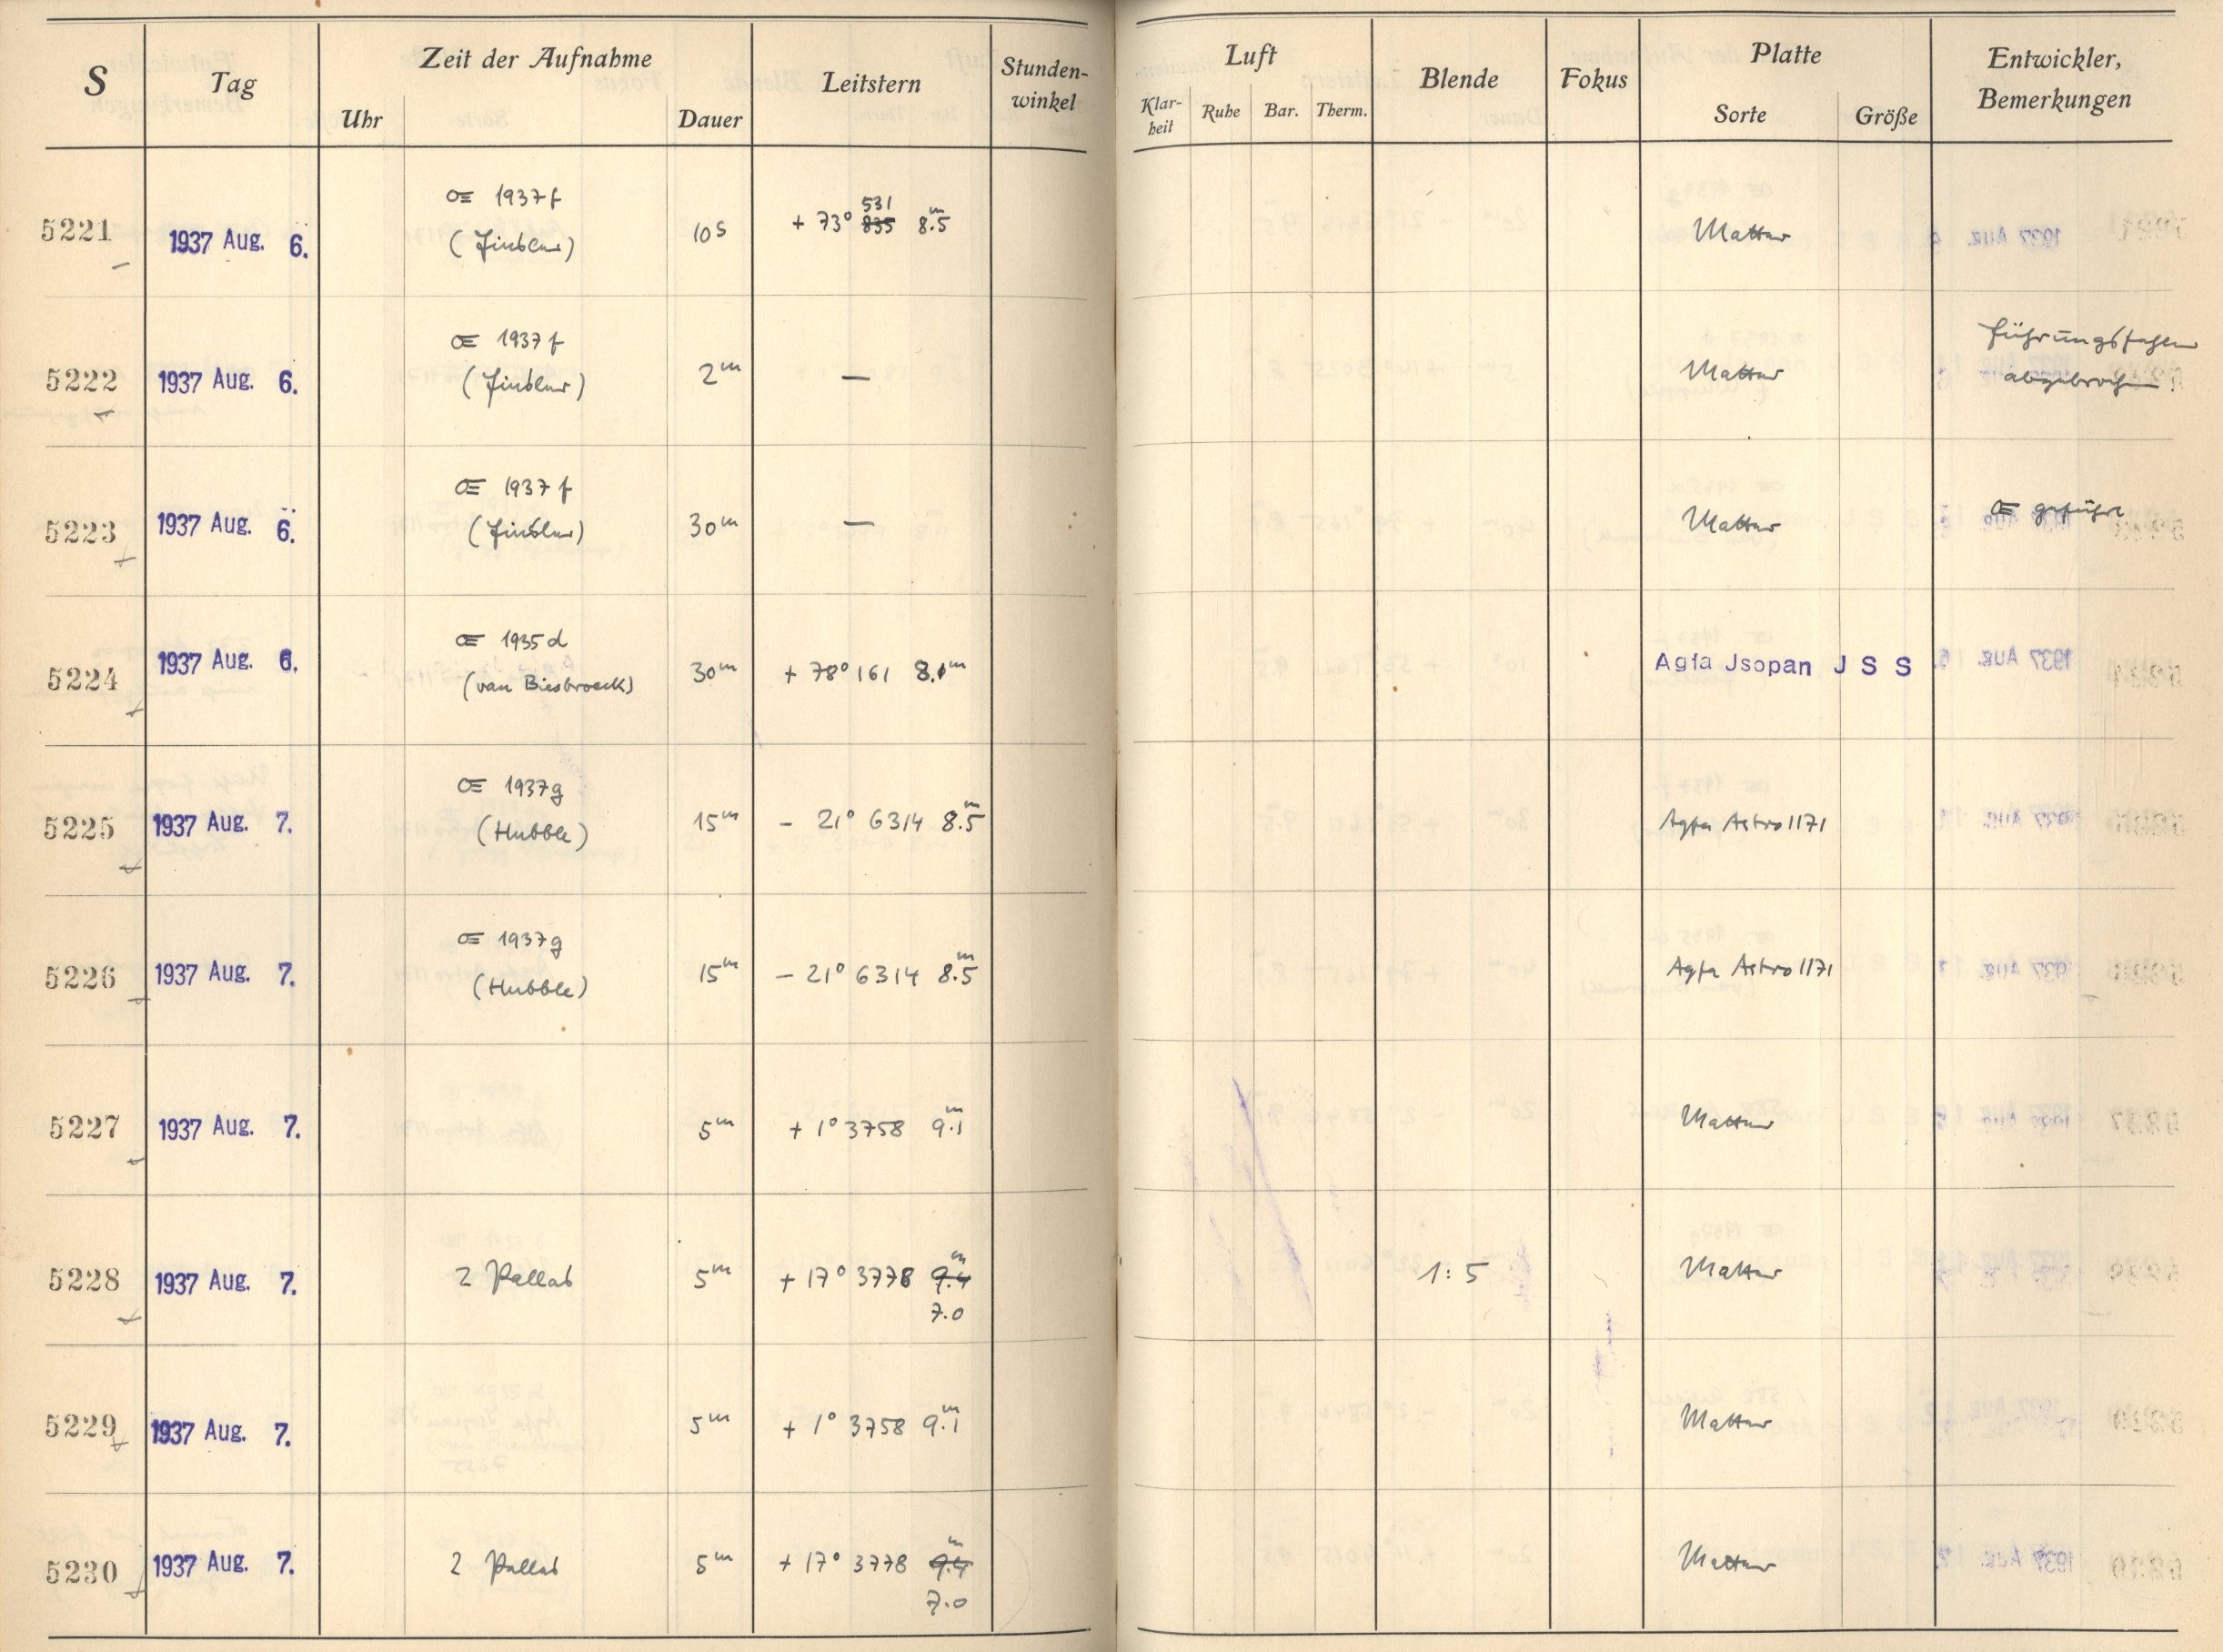 S Tag Zeit der Aufnahme Leitstern Stunden-winkel Luft Blende Fokus Platte Entwickler, Bemerkungen
Uhr Dauer Klar-heit Ruhe Bar. Therm. Sorte Größe
5221 1937 Aug. 6. 1937 f (Finsler) 10s + 73° 531 835 8.5m Matter
5222 1937 Aug. 6. 1937 f (Finsler) 2m — Matter Führungsfaden abgebrochen.
5223 1937 Aug. 6. 1937 f (Finsler) 30m — Matter geführt
5224 1937 Aug. 6. 1935 d (van Biesbroeck) 30m + 78° 161 8.1m Agfa Jsopan J S S
5225 1937 Aug. 7. 1937g (Hubble) 15m - 21° 6314 8.5m Agfa Astro 1171
5226 1937 Aug. 7. 1937g (Hubble) 15m - 21° 6314 8.5m Agfa Astro 1171
5227 1937 Aug. 7. 5m + 1° 3758 9.1m Matter
5228 1937 Aug. 7. 2 Pallas 5m + 17° 3778 9.4m 7.0 1:5 Matter
5229 1937 Aug. 7. 5m + 1° 3758 9.1m Matter
5230 1937 Aug. 7. 2 Pallas 5m + 17° 3778 9.4m 7.0 Matter